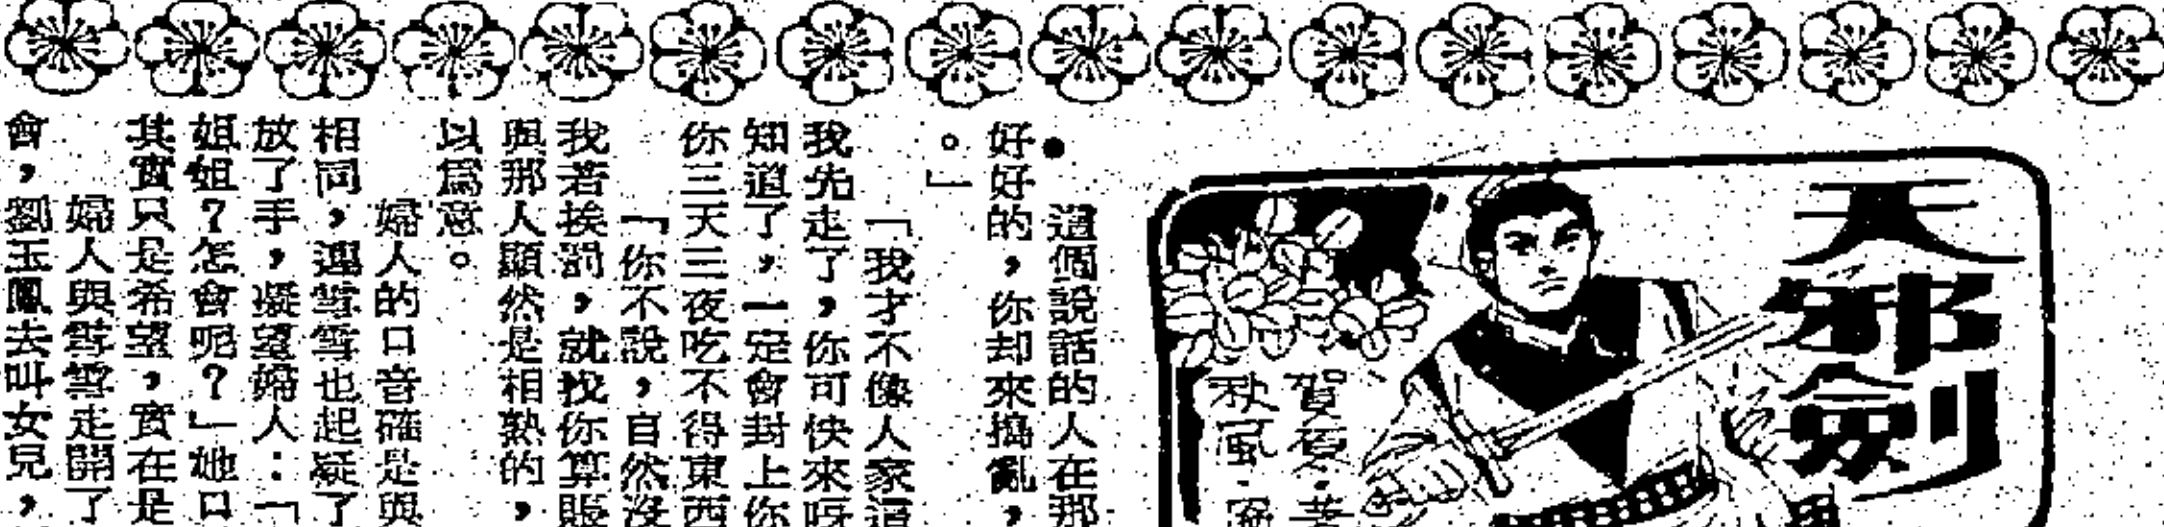 天邪劍
賀
秋風
這個說話的人在那
好好的，你却來搗亂，
。」
「我才不像人家這
我先走了，你可快來呀
知道了，一定會封上你
你三天三夜吃不得東西
「你不說，自然沒
我若挨罰，就找你算賬
與那人顯然是相熟的，
以爲意。
婦人的口音確是與
相同，連雪雪也起疑了
放了手，凝望婦人：「
姐姐？怎會呢？」她口
其實只是希望，實在是
婦人與雪雪走開了
會，劉玉鳳去叫女兒，